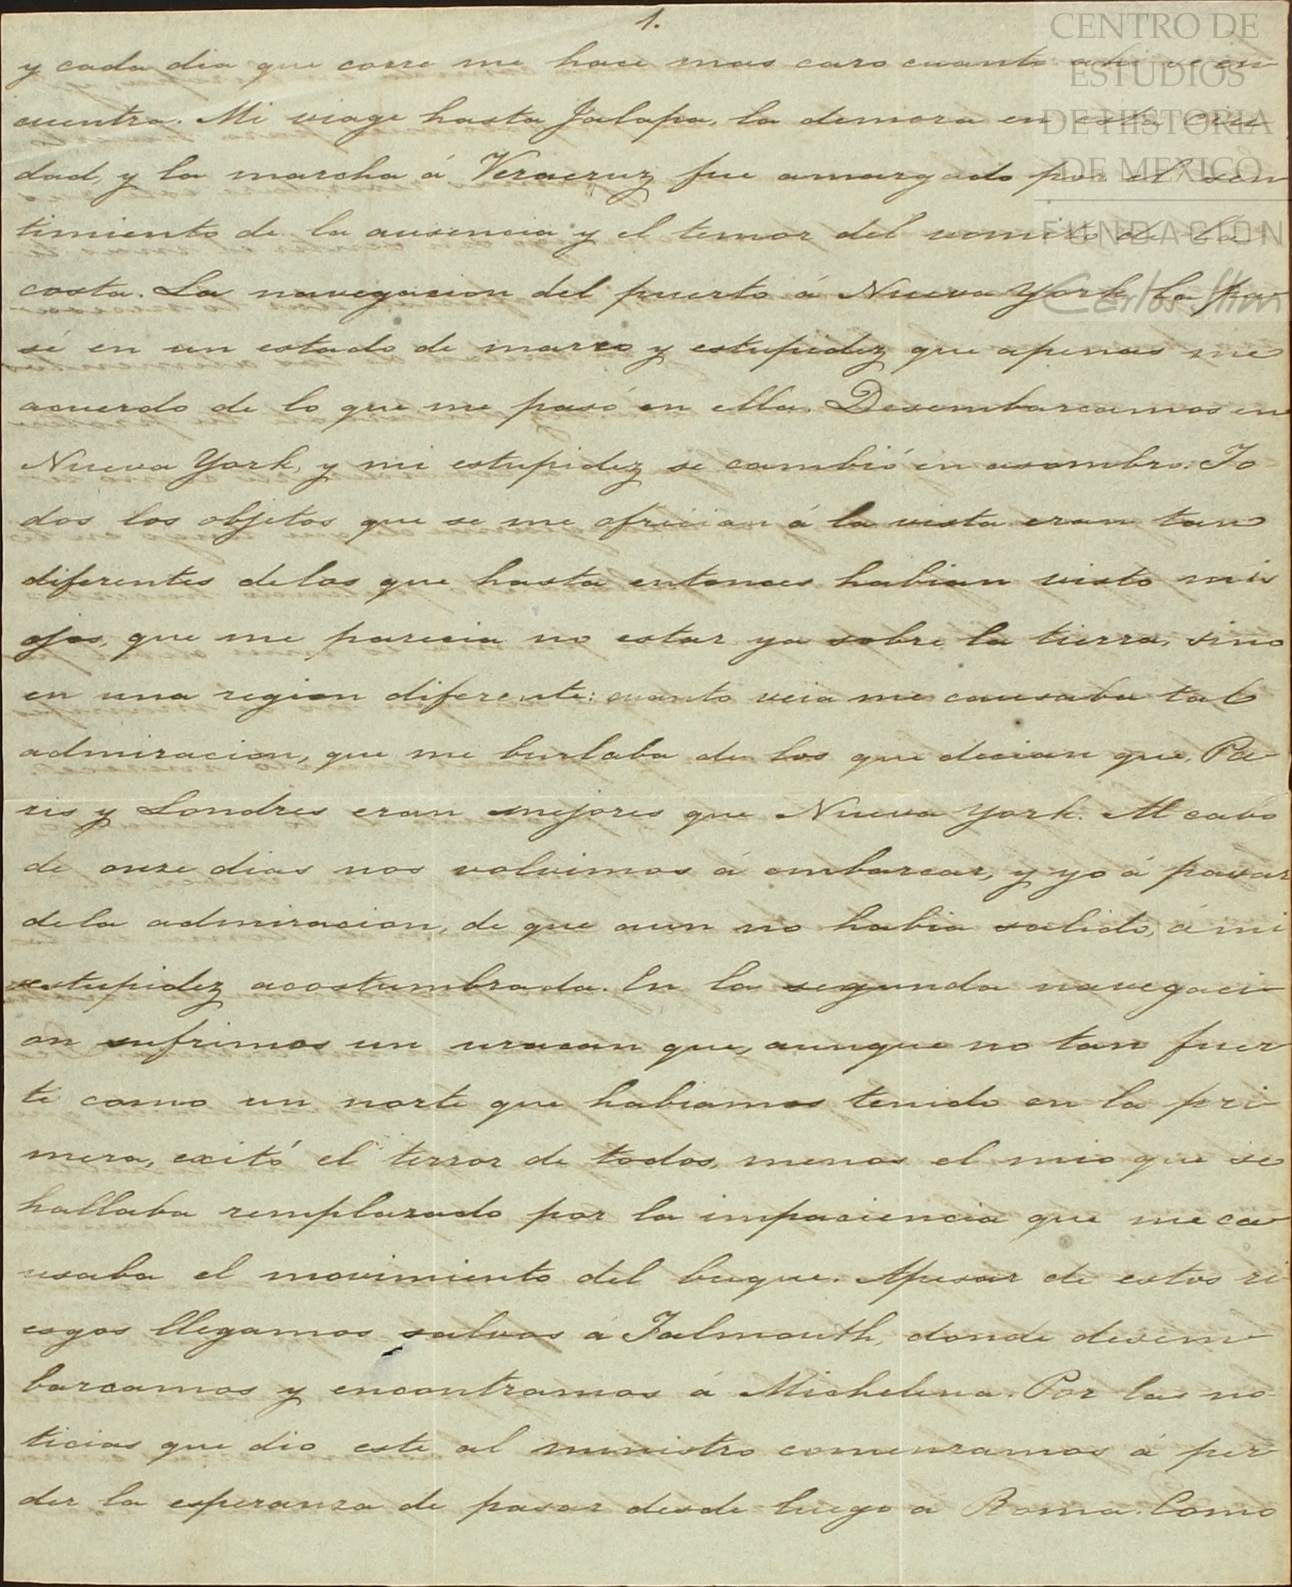 1.
CENTRO DE
ESTUDIOS
DE HISTORIA
DE MEXICO
FUNDACIÓN
Carlos Slim
y cada dia que corre me hace mas caro cuanto ahi se en-
cuentra. Mi viage hasta Jalapa, la demora en esta ciu-
dad, y la marcha á Veracruz fue amargado por el sen-
timiento de la ausencia y el temor del vomito de la
costa. La navegacion del puerto á Nueva York la pa-
sé en un estado de mareo y estupidez que apenas me
acuerdo de lo que me pasó en ella. Desembarcamos en
Nueva York, y mi estupidez se cambió en asombro. To-
dos los objetos que se me ofrecian á la vista eran tan
diferentes delos que hasta entonces habian visto mis
ojos, que me parecia no estar ya sobre la tierra, sino
en una region diferente: cuanto veia me causaba tal
admiracion, que me burlaba de los que decian que Pa-
ris y Londres eran mejores que Nueva York. Al cabo
de onze dias nos volvimos á embarcar, y yo á pasar
dela admiracion, de que aun no habia salido, á mi
estupidez acostumbrada. En la segunda navegaci-
on sufrimos un uracan que, aunque no tan fuer-
te como un norte que habiamos tenido en la pri-
mera, exitó el terror de todos, menos el mio que se
hallaba remplazado por la impaciencia que me ca-
usaba el movimiento del buque. Apesar de estos ri-
esgos llegamos salvos á Falmouth, donde desem-
barcamos y encontramos á Michelena. Por las no-
ticias que dio este al ministro comenzamos á per-
der la esperanza de pasar desde luego a Roma. Como